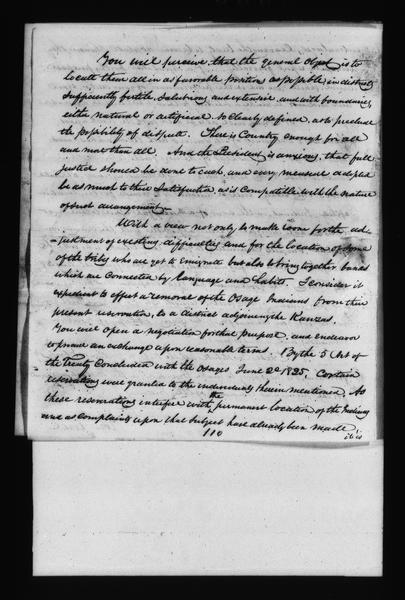 You will perceive, that the general object is to
locate them all in as favorable position as possible, in districts
sufficiently fertile, salubrious and extensive, and with boundaries,
either natural or artificial, so clearly defined, as to preclude
the possibility of dispute. There is Country enough for all
and more than all. And the President is anxious, that full
justice should be done to each, and every measure adopted
be as much to their satisfaction, as is compatible with the nature
of such arrangement.
With a view not only to make room for the ad-
-justment of existing difficulties and for the location of some
of the tribes who are yet to emigrate but also to bring together bands
which are connected by language and habits, I consider it
expedient to effect a removal of the Osage Indians from their
present reservation, to a district adjoining the Kanzas.
You will open a negotiation for that purpose, and endeavor
to procure an exchange upon reasonable terms. By the 5 Art of
the Treaty concluded with the Osages June 2d 1825, Certain
reservations were granted to the individuals therein mentioned. As
these reservations interfere with the permanent location of the Indians
and as complaints upon that subject have already been made,
110
it is